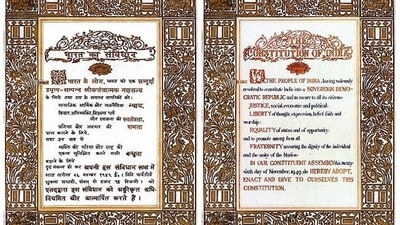 भारत का संविधान
हम, भारत के लोग, भारत को एक सम्पूर्ण
प्रभुत्व-सम्पन्न लोकतंत्रात्मक गणराज्य
बनाने के लिये, तथा उस के समस्त नागरिकों को:
सामाजिक, आर्थिक और राजनैतिक न्याय,
विचार, अभिव्यक्ति, विश्वास, धर्म
और उपासना की स्वतंत्रता,
प्रतिष्ठा और अवसर की समता
प्राप्त कराने के लिये,
तथा उन सब में
व्यक्ति की गरिमा और राष्ट्र की
एकता सुनिश्चित करने वाली बन्धुता
बढ़ाने के लिये
दृढ़ संकल्प हो कर अपनी इस संविधान सभा में
आज तारीख २६ नवम्बर १९४९ ई० (मिति मार्गशीर्ष
शुक्ला सप्तमी, संवत् दो हजार छह विक्रमी) को
एतद्द्वारा इस संविधान को अंगीकृत, अधि-
नियमित और आत्मार्पित करते हैं.
THE
CONSTITUTION OF INDIA
WE, THE PEOPLE OF INDIA, having solemnly
resolved to constitute India into a SOVEREIGN DEMO-
CRATIC REPUBLIC and to secure to all its citizens:
JUSTICE, social, economic and political;
LIBERTY of thought, expression, belief, faith and
worship;
EQUALITY of status and of opportunity;
and to promote among them all
FRATERNITY assuring the dignity of the individual
and the unity of the Nation;
IN OUR CONSTITUENT ASSEMBLY this twenty-
sixth day of November, 1949, do HEREBY ADOPT,
ENACT AND GIVE TO OURSELVES THIS
CONSTITUTION.